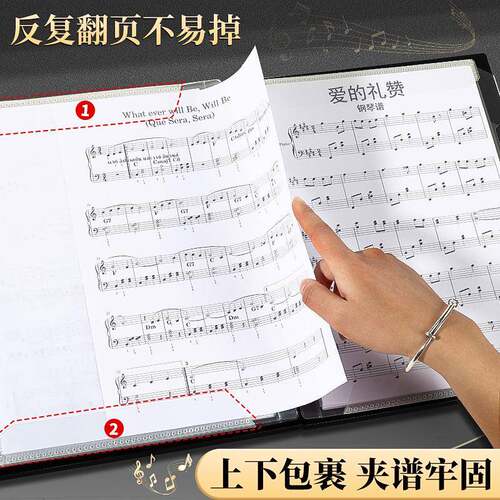 反复翻页不易掉
1
What ever will Be, Will Be
(Que Sera, Sera)
爱的礼赞
钢琴谱
G7
C
G7
C
Dm
G7
C
2
上下包裹 夹谱牢固